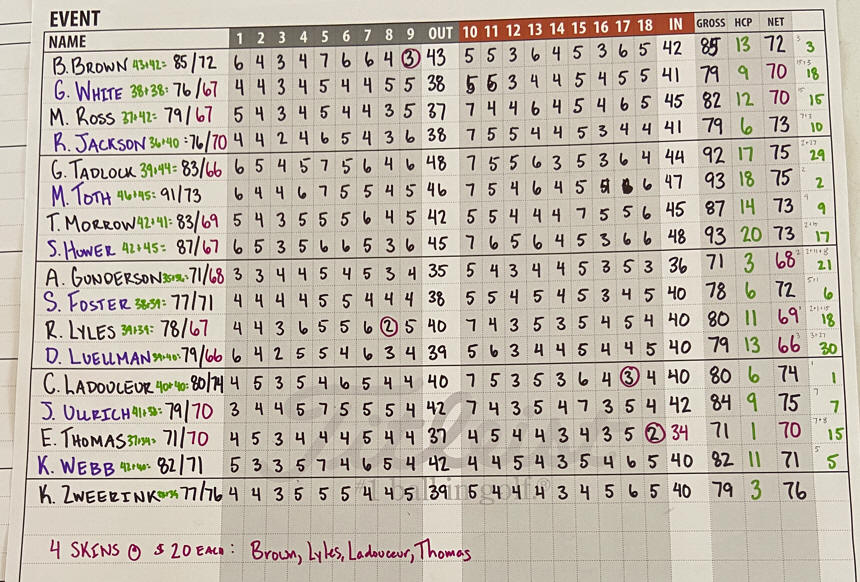 EVENT
NAME 1 2 3 4 5 6 7 8 9 OUT 10 11 12 13 14 15 16 17 18 IN GROSS HCP NET
B. BROWN 43+42= 85/72 6 4 3 4 7 6 6 4 3 43 5 5 3 6 4 5 3 6 5 42 85 13 72 3
G. WHITE 38+38= 76/67 4 4 3 4 5 4 4 5 5 38 5 6 3 4 4 5 4 5 5 41 79 9 70 18
M. ROSS 37+42= 79/67 5 4 3 4 5 4 4 3 5 37 7 4 4 6 4 5 4 6 5 45 82 12 70 15
R. JACKSON 36+40=76/70 4 4 2 4 6 5 4 3 6 38 7 5 5 4 4 5 3 4 4 41 79 6 73 10
G. TADLOCK 39+44= 83/66 6 5 4 5 7 5 6 4 6 48 7 5 5 6 3 5 3 6 4 44 92 17 75 29
M. TOTH 46+45= 91/73 6 4 4 6 7 5 5 4 5 46 7 5 4 6 4 5 6 47 93 18 75 2
T. MORROW 42+41= 83/69 5 4 3 5 5 5 6 4 5 42 5 5 4 4 4 7 5 5 6 45 87 14 73 9
S. HOWER 42+45= 87/67 6 5 3 5 6 6 5 3 6 45 7 6 5 6 4 5 3 6 6 48 93 20 73 17
A. GUNDERSON 35+36=71/68 3 3 4 4 5 4 5 3 4 35 5 4 3 4 4 5 3 5 3 36 71 3 68 21
S. FOSTER 38+39= 77/71 4 4 4 4 5 5 4 4 4 38 5 5 4 5 4 5 3 4 5 40 78 6 72 6
R. LYLES 39+39= 78/67 4 4 3 6 5 5 6 2 5 40 7 4 3 5 3 5 4 5 4 40 80 11 69 18
D. LUELLMAN 39+40=79/66 6 4 2 5 5 4 6 3 4 39 5 6 3 4 4 5 4 4 5 40 79 13 66 30
C. LADOUCEUR 40+40=80/74 4 5 3 5 4 6 5 4 4 40 7 5 3 5 3 6 4 3 4 40 80 6 74 1
J. ULLRICH 41+38= 79/70 3 4 4 5 7 5 5 5 4 42 7 4 3 5 4 7 3 5 4 42 84 9 75 7
E. THOMAS 37+34= 71/70 4 5 3 4 4 4 5 4 4 37 4 5 4 4 3 4 3 5 2 34 71 1 70 15
K. WEBB 42+40= 82/71 5 3 3 5 7 4 6 5 4 42 4 4 5 4 3 5 4 6 5 40 82 11 71 5
K. ZWEERINK 77/76 4 4 3 5 5 5 4 4 5 39 5 4 4 4 3 4 5 6 5 40 79 3 76
#1 ball in golf.®
4 SKINS @ $20 EACH: Brown, Lyles, Ladouceur, Thomas